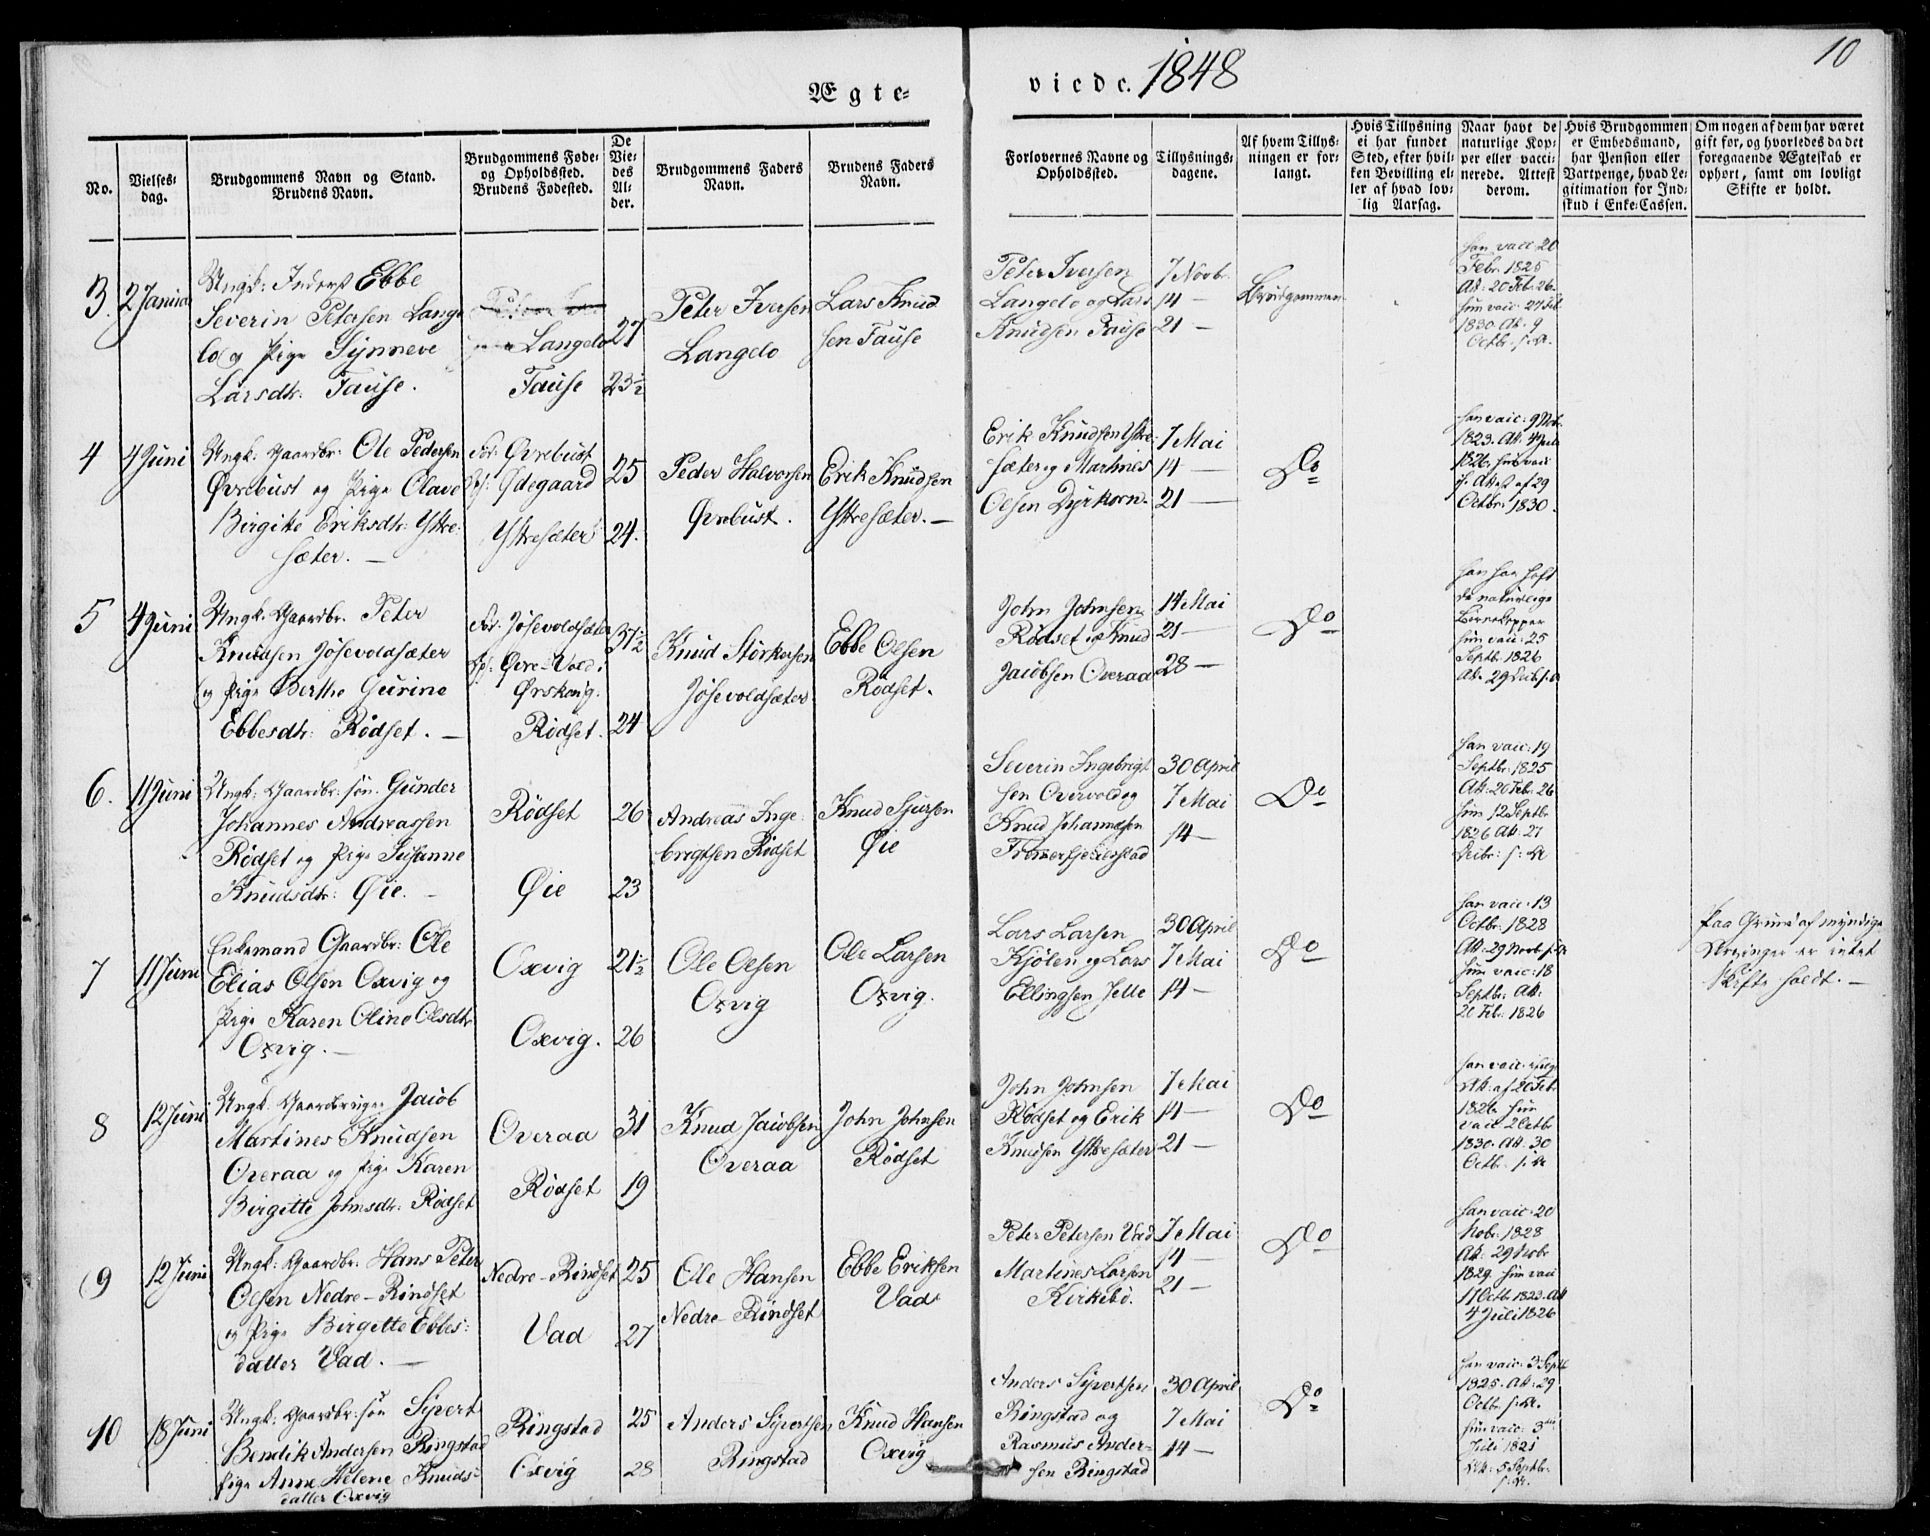 Ægte-
viede. 1848
10
No.
Vielses-
dag.
Brudgommens Navn og Stand.
Brudens Navn.
Brudgommens Føde-
og Opholdssted.
Brudens Fødested.
De
Vie-
des
Al-
der.
Brudgommens Faders
Navn.
Brudens Faders
Navn.
Forlovernes Navne og
Opholdssted.
Tillysnings-
dagene.
Af hvem Tillys-
ningen er for-
langt.
Hvis Tillysning
ei har fundet
Sted, efter hvil-
ken Bevilling el-
ler af hvad lov-
lig Aarsag.
Naar havt de
naturlige Kop-
per eller vacci-
nerede. Attest
derom.
Hvis Brudgommen
er Embedsmand,
har Pension eller
Vartpenge, hvad Le-
gitimation for Ind-
skud i Enke-Cassen.
Om nogen af dem har været
gift før, og hvorledes da det
foregaaende Ægteskab er
ophørt, samt om lovligt
Skifte er holdt.
3.
2 Januar
Ungk: Inderst Ebbe
Severin Petersen Lange
lo og Pige Synneve
Larsdtr. Fause.
Langelo
Fause
27
23½
Peter Iversen
Langelo
Lars Knud
sen Fause
Peter Iversen
Langelo og Lars
Knudsen Fause
7 Novbr.
14 —
21 —
Brudgommen
han vacc: 20
Febr. 1825
At: 20 Feb. 26.
hun vacc: 27 Feb
1830. At. 9
Octbr. s: A.
4
4 Juni
Ungk: Gaardbr: Ole Pedersen
Øvrebust og Pige Olave
Birgite Eriksdtr: Ystre-
sæter. —
Fød: Øvrebust
Op: Ødegaard
Ystresæter
25
24.
Peder Halvorsen
Øvrebust.
Erik Knudsen
Ystresæter. —
Erik Knudsen Ystre-
sæter og Martines
Olsen Dyrkorn.
7 Mai
14 —
21 —
Do
han vacc: 9 Nov.
1823. At. 4 Juli
1826. hun vacc
Attest af 29
Octbr. 1830.
5
4 Juni
Ungk. Gaardbr. Peter
Knudsen Jösevoldsæter
og Pige Berthe Gurine
Ebbesdtr: Rödset. —
Fød. Jösevoldsæter
Op: Øvre-Vold i
Ørskoug.
Rödset.
31½
24
Knud Störkersen
Jösevoldsæter
Ebbe Olsen
Rödset.
John Johnsen
Rödset og Knud
Jacobsen Overaa
14 Mai
21 —
28 —
Do
han har haft
de naturlige
Börnekopper
hun vacc: 25
Septb. 1826
At. 29 Decb. s: A
6.
11 Juni
Ungk: Gaardbr: sön. Gunder
Johannes Andreassen
Rödset og Pige Susanne
Knudsdtr: Øie. —
Rödset
Øie
26
23
Andreas Inge-
brigtsen Rödset
Knud Sjursen
Øie
Severin Ingebrigt
sen Overvold og
Knud Johannesen
30 April
7 Mai
14 —
Do
han vacc: 19
Septbr. 1825
At: 20 Feb. 26
hun 12 Septbr
1826 At: 27
Decbr: s: A
7
11 Juni
Enkemand Gaardbr: Ole
Elias Olsen Oxvig og
Pige Karen Oline Olsdtr
Oxvig. —
Oxvig
Oxvig.
21½
26
Ole Olsen
Oxvig
Ole Larsen
Oxvig.
Lars Larsen
Kjölen og Lars
Ellingsen Jelle
30 April
7 Mai
14 —
Do
han vacc: 13
Octbr: 1828
At: 29 Novb. s: A
hun vacc: 18
Septbr: At:
20 Feb: 1826
Paa Grund af myndige
Arvinger er intet
Skifte holdt. —
8
12 Juni
Ungk: Gaardbruger Jacob
Martines Knudsen
Overaa og Pige Karen
Birgitte Johnsdtr. Rödset
Overaa
Rödset
31
19
Knud Jacobsen
Overaa
John Johnsen
Rödset
John Johnsen
Rödset og Erik
Knudsen Ystresæter
7 Mai
14 —
21 —
Do
han vacc.
At: af 20 Febr.
1826 hun
vacc 2 Octb
1830. At. 30
Octbr. s: A
9
12 Juni
Ungk: Gaardbr. Hans Peter
Olsen Nedre-Rindset
og Pige Birgitte Ebbes-
datter Vad. —
Nedre-Rindset
Vad
25
27
Ole Hansen
Nedre-Rindset
Ebbe Eriksen
Vad
Peter Petersen Vad
Martines Larsen
Kirkebö.
7 Mai
14 —
21 —
Do
han vacc: 20
Nobr. 1828
At: 29 Nobr
1829. hun vacc
11 Octb. 1823. At
4 Juli 1826
10
18 Juni
Ungk: Gaardbr: sön Sivert
Bendik Andersen Ringstad
Pige Anne Helene Knuds-
datter Oxvig
Ringstad
Oxvig
25
28
Anders Sivertsen
Ringstad
Knud Hansen
Oxvig
Anders Sivertsen
Ringstad og
Rasmus Ander-
sen Ringstad
30 April
7 Mai
14 —
Do
han vacc: 3 Septb
1825. At. 29
Octb. s: A.
hun vacc: 3die
Juli 1821
At: 5 Septbr.
s: A.